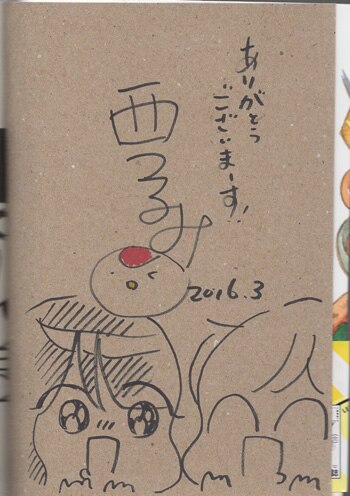 ありがとう
ございまーす!!
西つるみ
2016.3